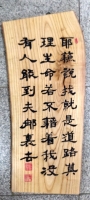 耶穌說我就是道路真
理生命若不藉着我沒
有人能到父那裏去